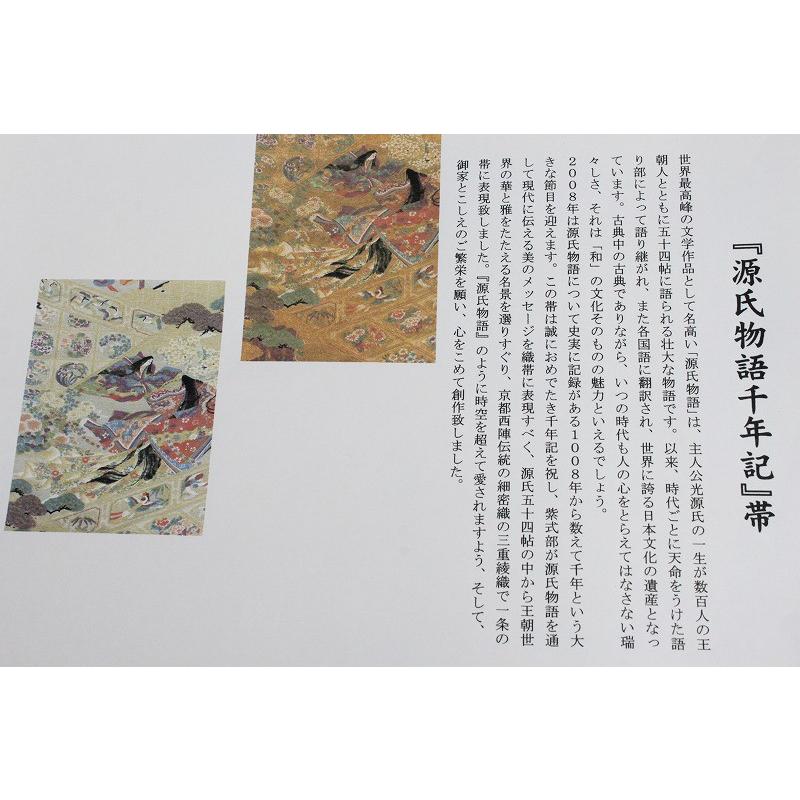 『源氏物語千年記』帯
世界最高峰の文学作品として名高い「源氏物語」は、主人公光源氏の一生が数百人の王
朝人とともに五十四帖に語られる壮大な物語です。以来、時代ごとに天命をうけた語
り部によって語り継がれ、また各国語に翻訳され、世界に誇る日本文化の遺産となっ
ています。古典中の古典でありながら、いつの時代も人の心をとらえてはなさない瑞
々しさ、それは「和」の文化そのものの魅力といえるでしょう。
2008年は源氏物語について史実に記録がある1008年から数えて千年という大
きな節目を迎えます。この帯は誠におめでたき千年記を祝し、紫式部が源氏物語を通
して現代に伝える美のメッセージを織帯に表現すべく、源氏五十四帖の中から王朝世
界の華と雅をたたえる名景を選りすぐり、京都西陣伝統の細密織の三重綾織で一条の
帯に表現致しました。『源氏物語』のように時空を超えて愛されますよう、そして、
御家とこしえのご繁栄を願い、心をこめて創作致しました。